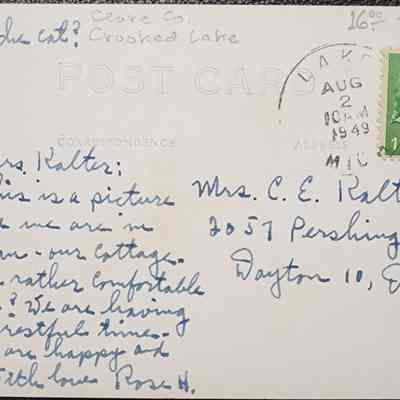 the cat?
Clare Co.
Crooked Lake
16.00
POST CARD
CORRESPONDENCE
ADDRESS
LAKE
AUG
2
10 AM
1949
MIC
1
rs. Kalter:
his is a picture
e we are in
an - our cottage.
rather comfortable
? We are having
restful time.
are happy ad
ith love Rose H.
Mrs. C. E. Kalt
2057 Pershing
Dayton 10,